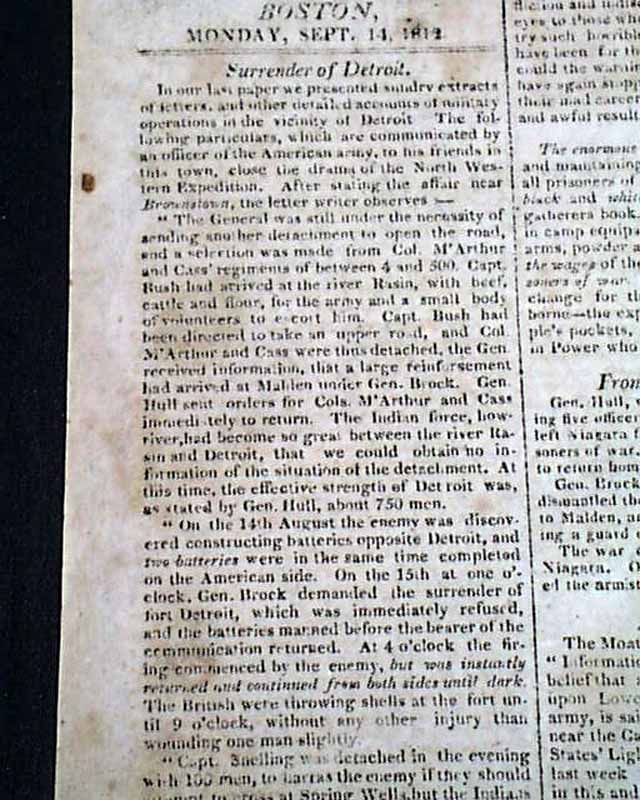 BOSTON,
MONDAY, SEPT. 14, 1812
Surrender of Detroit.
In our last paper we presented sundry extracts
of letters, and other detailed accounts of military
operations in the vicinity of Detroit The fol-
lowing particulars, which are communicated by
an officer of the American army, to his friends in
this town, close the drama of the North Wes-
tern Expedition. After stating the affair near
Brownstown, the letter writer observes :—
" The General was still under the necessity of
sending another detachment to open the road,
and a selection was made from Col. M'Arthur
and Cass' regiments of between 4 and 500. Capt.
Bush had arrived at the river Rasin, with beef,
cattle and flour, for the army and a small body
of volunteers to escort him. Capt. Bush had
been directed to take an upper road, and Col.
M'Arthur and Cass were thus detached, the Gen.
received information, that a large reinforsement
had arrived at Malden under Gen. Brock. Gen.
Hull sent orders for Cols. M'Arthur and Cass
immediately to return. The Indian force, how-
river,had become so great between the river Ra-
sin and Detroit, that we could obtain no in-
formation of the situation of the detachment. At
this time, the effective strength of Detroit was,
as stated by Gen. Hull, about 750 men.
" On the 14th August the enemy was discov-
ered constructing batteries opposite Detroit, and
two batteries were in the same time completed
on the American side. On the 15th at one o'-
clock, Gen. Brock demanded the surrender of
fort Detroit, which was immediately refused,
and the batteries manned before the bearer of the
communication returned. At 4 o'clock the fir-
ing commenced by the enemy, but was instantly
returned and continued from both sides until dark.
The British were throwing shells at the fort un-
til 9 o'clock, without any other injury than
wounding one man slightly.
" Capt. Snelling was detached in the evening
with 100 men, to harras the enemy if they should
attempt to cross at Spring Wells,but the Indians
eyes to those who
try such horrible
have been for th
could the warnin
have again stopp
their mad career
and awful result
The enormous
and maintaining
all prisoners of
black and whit
gatherers book
in camp equip
arms, powder a
the wages of the
soners of war.
change for th
borne—the exp
ple's pockets,
in Power who
From
Gen. Hull, w
ing five officer
left Niagara f
soners of war.
to return hom
Gen. Brock
dismantled the
to Malden, an
ing a guard o
The war
Niagara. O
ed the armist
The Moat
" Informatio
belief that a
upon Lowe
army, is sa
near the Ca
States' Ligh
last week
in this and